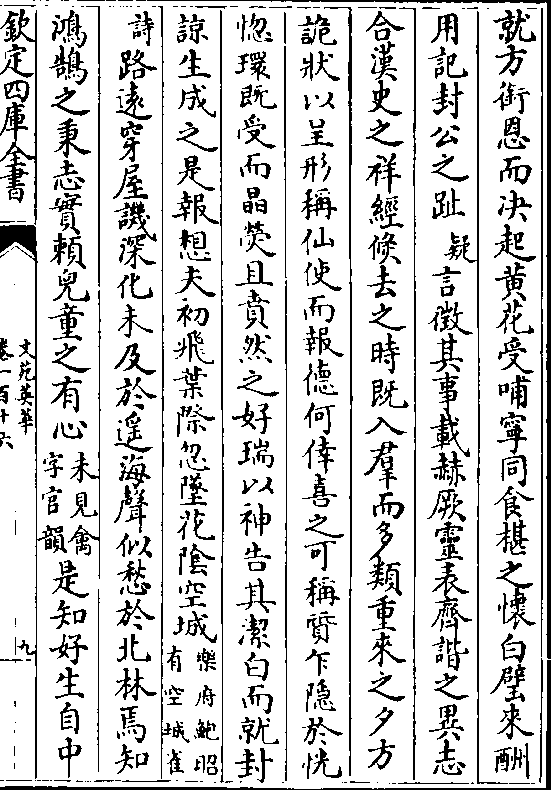 就方銜恩而決起黄花受哺寧同食椹之懷白璧來酬
用記封公之趾疑言徴其事載赫厥靈表齊諧之異志
合漢史之祥經倏去之時既入羣而多類重來之夕方
詭狀以呈形稱仙使而報德何倖喜之可稱質乍隠於恍
惚環既受而晶熒且賁然之好瑞以神告其潔白而就封
諒生成之是報想夫初飛葉際忽墜花陰空城樂府鮑昭有空城雀
詩路逺穿屋譏深化未及於遥海聲似愁於北林焉知
鴻鵠之秉志實頼兒童之有心未見禽字官韻是知好生自中
欽定四庫全書
文苑英華
卷一百十六
九